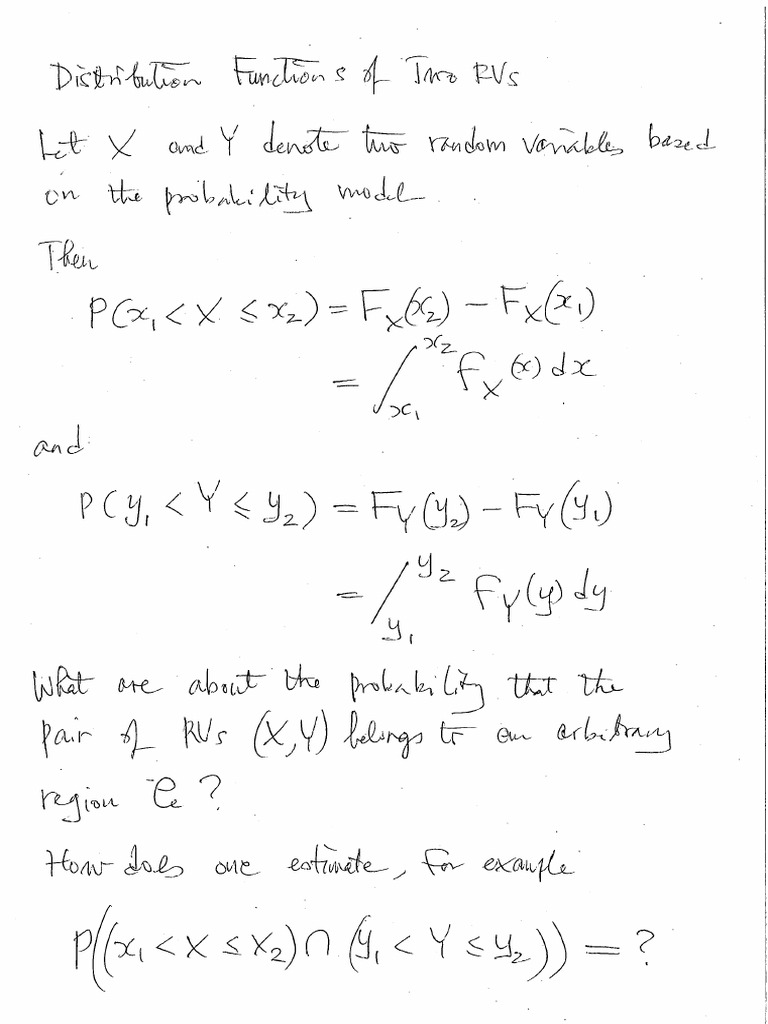 Distribution Functions of Two RVs
Let X and Y denote two random variables based
on the probability model.
Then
P(x₁ < X ≤ x₂) = F_X(x₂) − F_X(x₁)
= ∫_{x₁}^{x₂} f_X(x) dx
and
P(y₁ < Y ≤ y₂) = F_Y(y₂) − F_Y(y₁)
= ∫_{y₁}^{y₂} f_Y(y) dy
What are about the probability that the
pair of RVs (X,Y) belongs to an arbitrary
region ?
How does one estimate, for example
P((x₁ < X ≤ X₂) ∩ (y₁ < Y ≤ y₂)) = ?